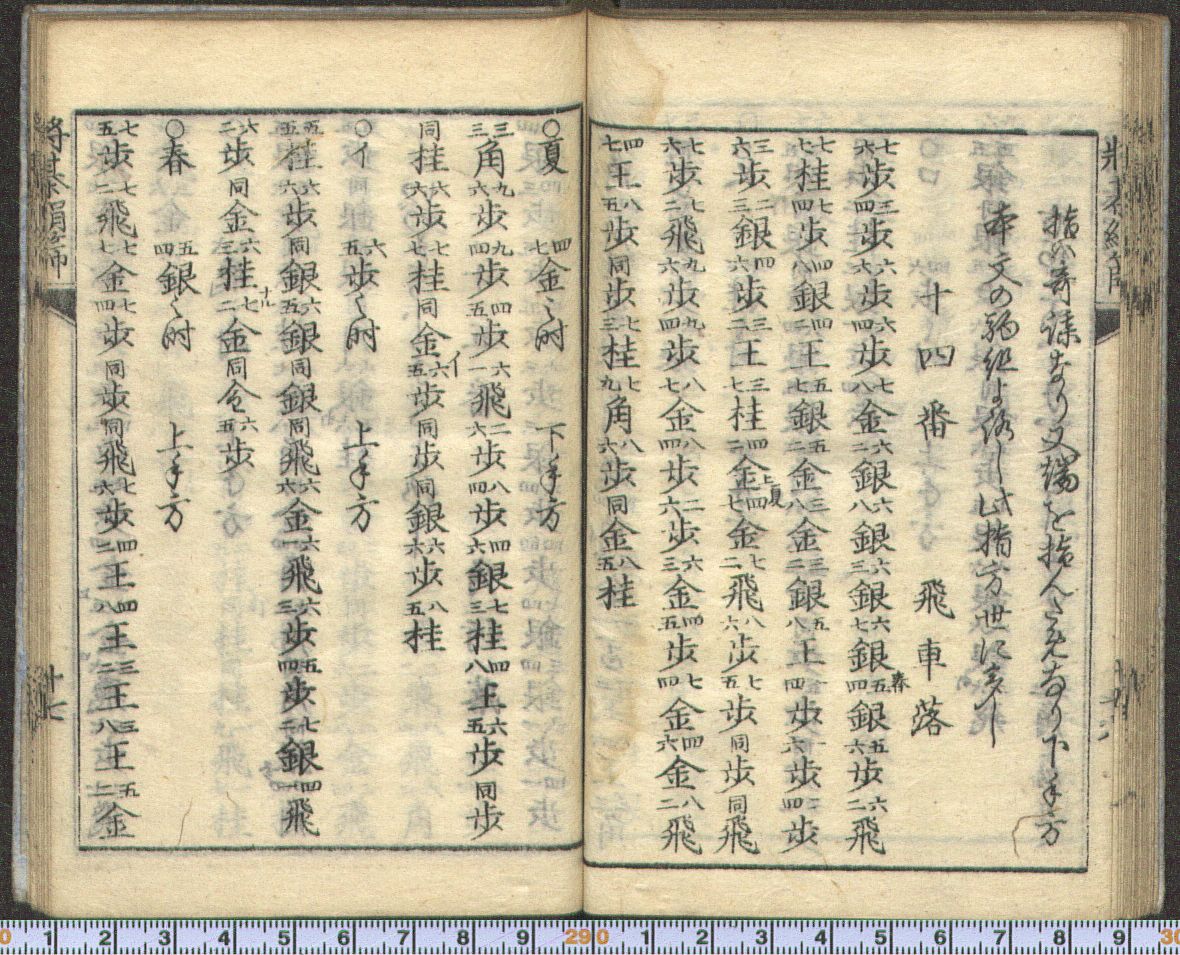 指ハ奇謀なり又端を指んためなり下手方
本文の駒組よろし此指方世に多し
十四番 飛車落
七六歩 三四歩 六六歩 六四歩 七八金 六二銀 六八銀 六三銀 六七銀 五四銀春 五六銀 六二飛
七七桂 七四歩 四八銀 四二王 五七銀 五二金 三八金 三二銀 五八王 一四歩 一六歩 二四歩
三六歩 二三銀 四六歩 三二王 三七桂 四二金上夏 四七金 七二飛 八六歩 七五歩 同歩 同飛
七六歩 七二飛 九六歩 九四歩 八七金 八四歩 二六歩 六三金 四五歩 七四金 四六金 八二飛
四七王 八五歩 同歩 七三桂 七九角 八六歩 同金 八五桂
○夏 四七金之时 下手方
三三角 九六歩 九四歩 四五歩 六一飛 二六歩 八四歩 四六銀 七三桂 四八王 六五歩 同歩
同桂 六六歩 七七桂 同金 六五歩イ 同歩 同銀 六六歩 八五桂
○イ 六五歩之时 上手方
五五桂 六六歩 同銀 六五銀 同銀 同飛 六六金 六一飛 六三歩 五四歩 七二銀 四一飛
六二歩 同金 六三桂ナル 七二金 同仝 六五歩
○春 五四銀之时 上手方
七五歩 七二飛 七七金 七四歩 同歩 同飛 七六歩 四二王 四八王 三二王 三八王 五二金
将棊絹篩
廿七